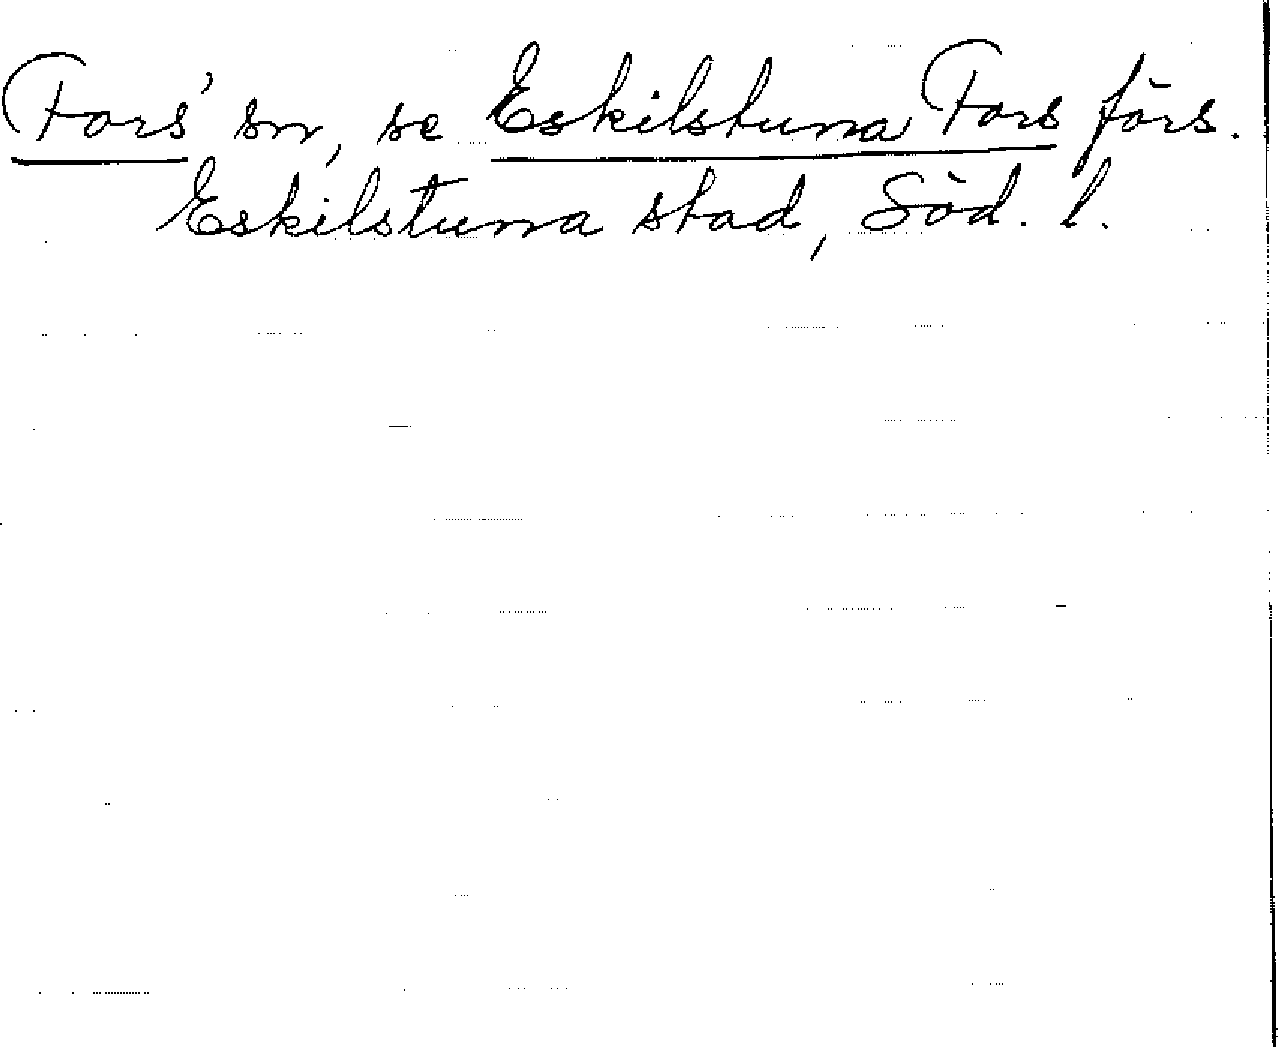 Fors' sn, se Eskilstuna Fors förs.
Eskilstuna stad, Söd. l.